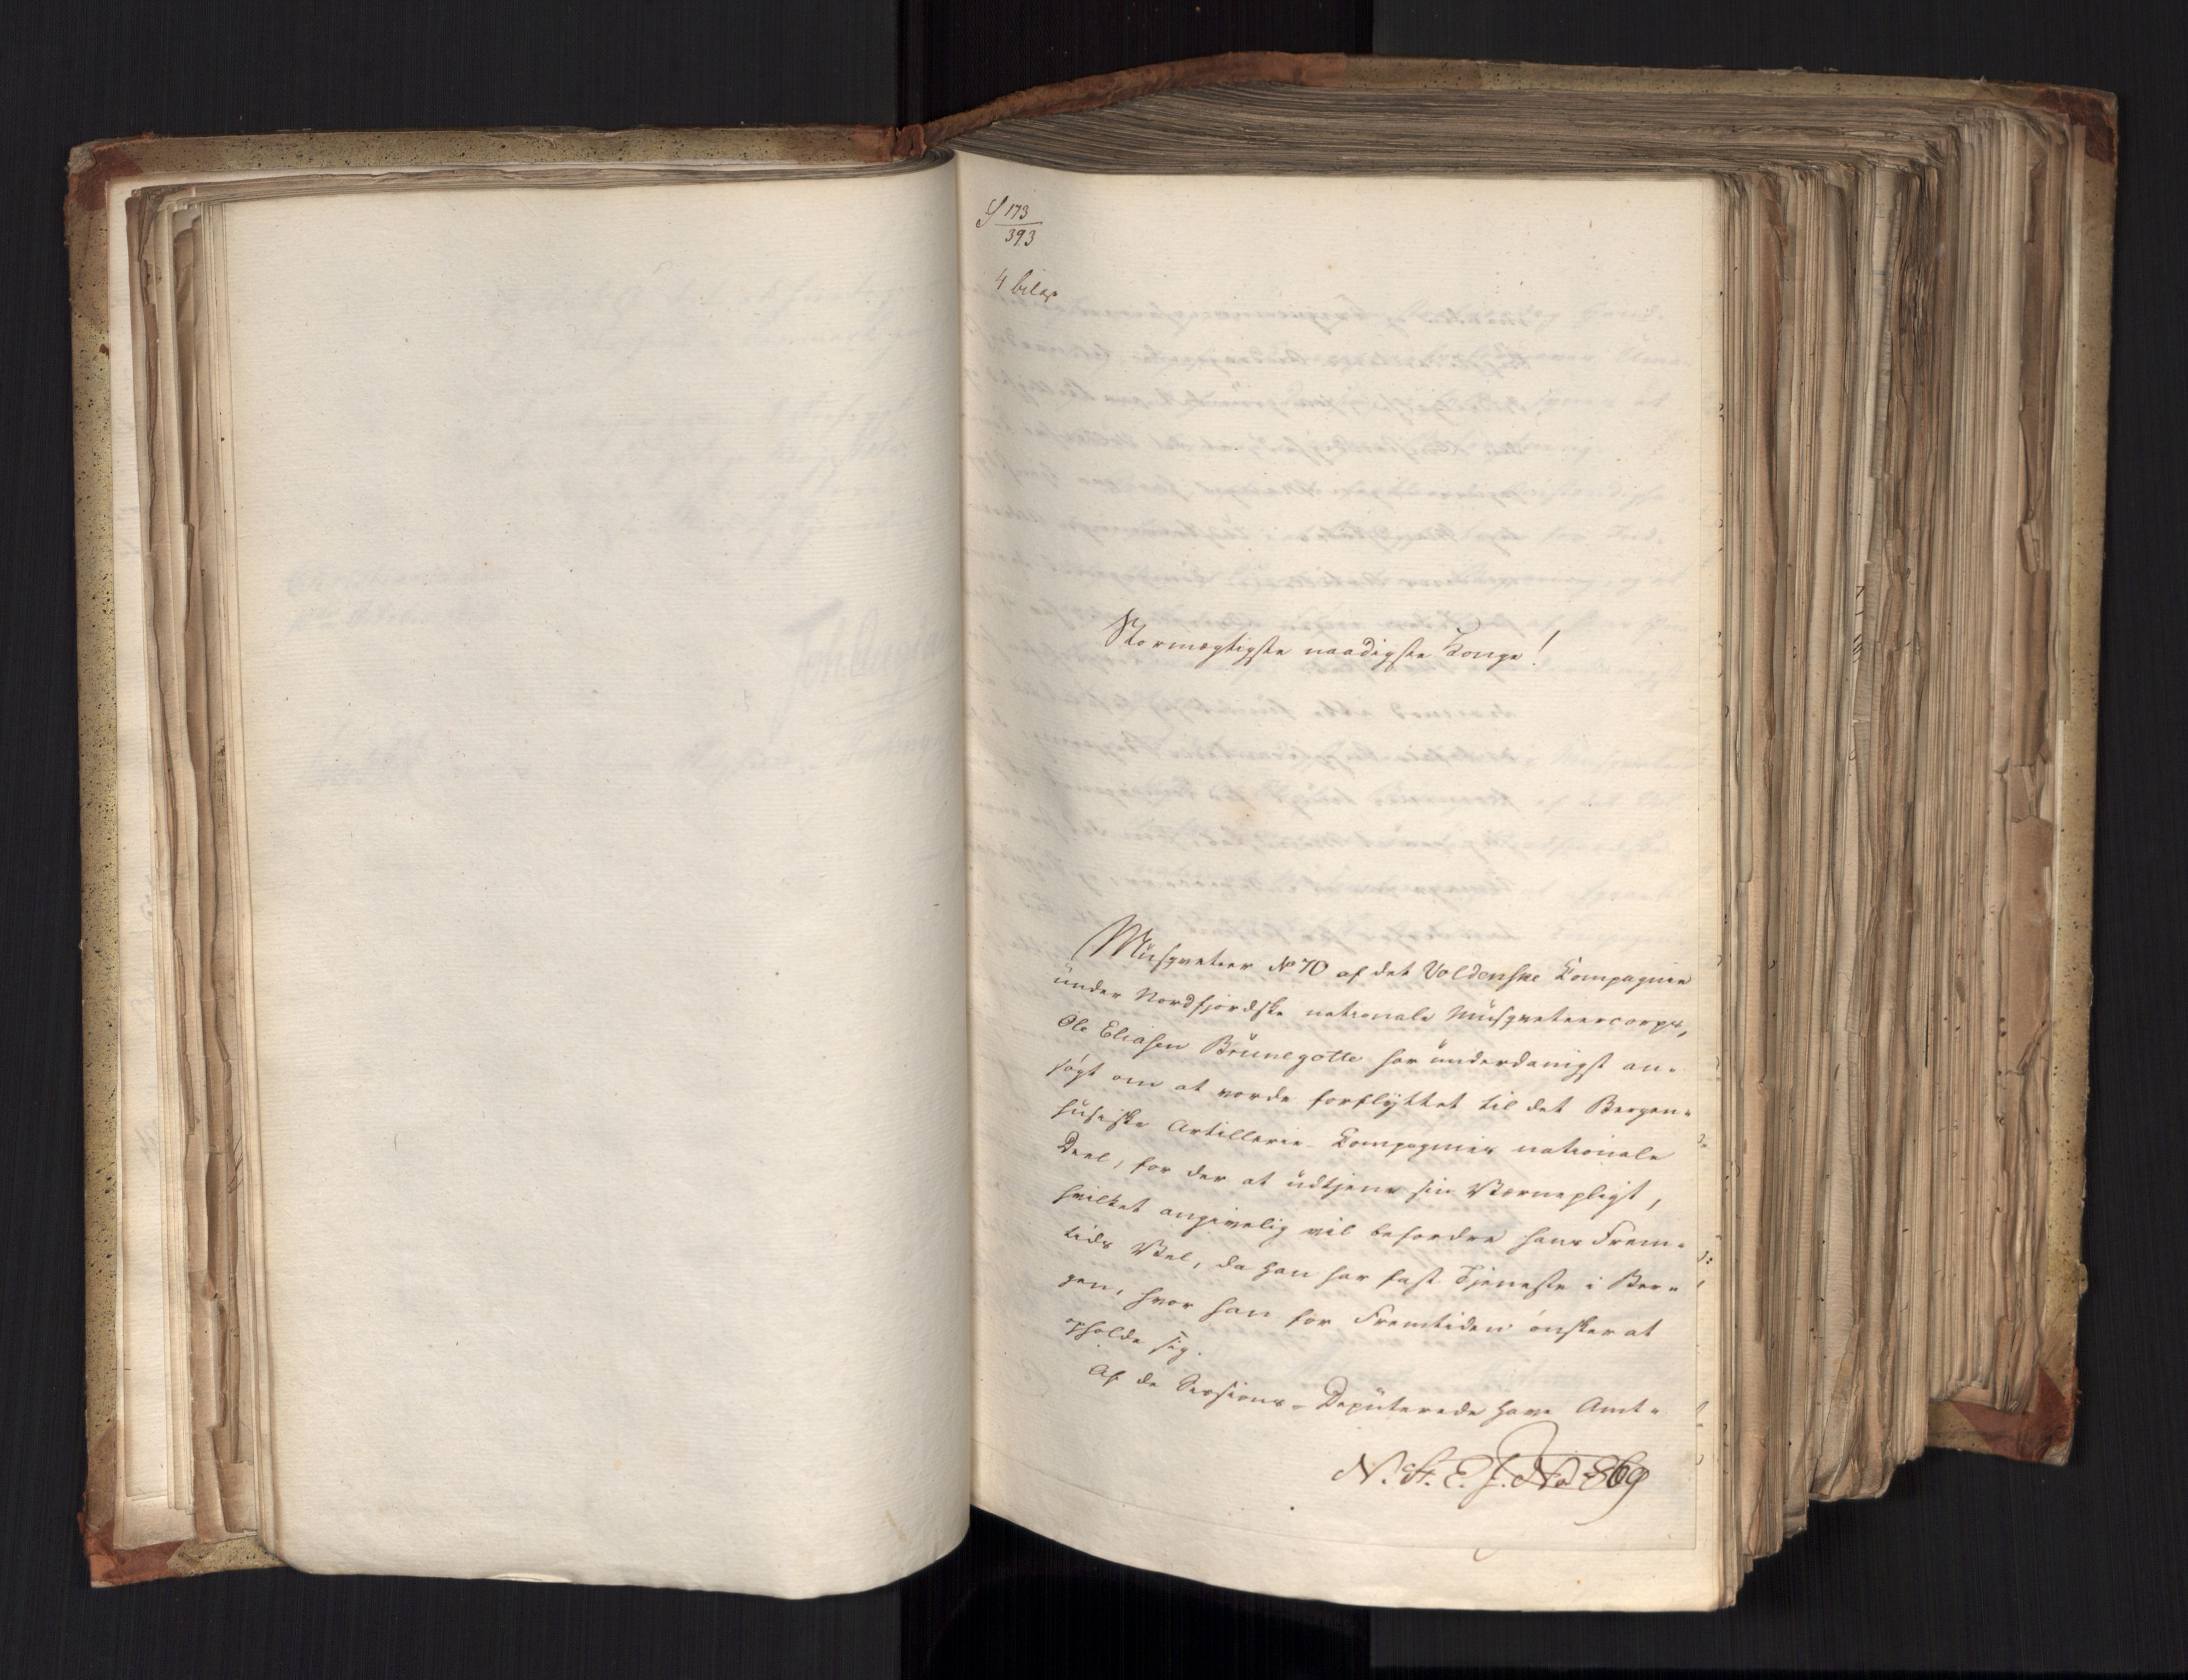 S 173
393
4 bilag
Stormægtigste naadigste Konge!
Musqueteer No 70 af det Voldenske Kompagnie
under Nordfjordske nationale Musqueteercorps,
Ole Eliasen Brunegotte har underdanigst an-
søgt om at vorde forflyttet til det Bergen-
husiske Artillerie-Kompagnies nationale
Deel, for der at udtjene sin Værnepligt,
hvilket angivelig vil befordre hans Frem-
tids Vel, da han har fast Tjeneste i Ber-
gen, hvor han for Fremtiden ønsker at
opholde sig.
Af de Sessions-Deputerede have Amt-
N. St. E. J. No 869